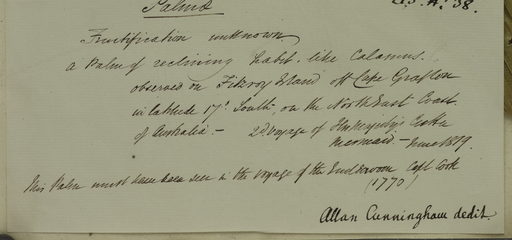 Palmæ
38.
Fructification unknown
a Palm of reclining habit, like Calamus.
observed on Fitzroy Island off Cape Grafton
in latitude 17° South, on the North East Coast
of Australia. — 2d voyage of His Majesty's Cutter
Mermaid — June 1819.
This Palm must have been seen in the voyage of the Endeavour Capt Cook
(1770)
Allan Cunningham dedit.